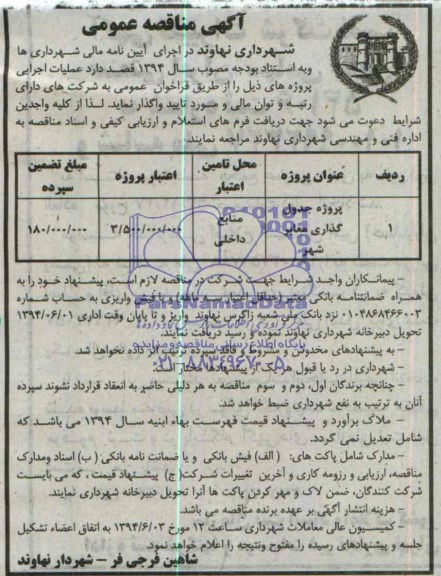 آگهی مناقصه عمومی
شهرداری نهاوند در اجرای آیین نامه مالی شهرداری ها
وبه استناد بودجه مصوب سال ۱۳۹۴ قصد دارد عملیات اجرایی
پروژه های ذیل را از طریق فراخوان عمومی به شرکت های دارای
رتبه و توان مالی و مورد تایید واگذار نماید. لذا از کلیه واجدین
شرایط دعوت می شود جهت دریافت فرم های استعلام و ارزیابی کیفی و اسناد مناقصه به
اداره فنی و مهندسی شهرداری نهاوند مراجعه نمایند.
ردیف عنوان پروژه محل تامین اعتبار اعتبار پروژه مبلغ تضمین سپرده
۱ پروژه جدول گذاری معابر شهر منابع داخلی ۳/۵۰۰/۰۰۰/۰۰۰ ۱۸۰/۰۰۰/۰۰۰
- پیمانکاران واجد شرایط جهت شرکت در مناقصه لازم است، پیشنهاد خود را به
همراه ضمانتنامه بانکی معتبر حداقل اعتبار سه ماهه یا فیش واریزی به حساب شماره
۰۱۰۴۸۶۸۴۶۶۰۰۳ نزد بانک ملی شعبه زاگرس نهاوند واریز و تا پایان وقت اداری ۱۳۹۴/۰۶/۰۱
تحویل دبیرخانه شهرداری نهاوند نموده و رسید دریافت نمایند.
- به پیشنهادهای مخدوش و مشروط و فاقد سپرده ترتیب اثر داده نخواهد شد.
- شهرداری در رد یا قبول هر یک از پیشنهادها مختار است.
- چنانچه برندگان اول، دوم و سوم مناقصه به هر دلیلی حاضر به انعقاد قرارداد نشوند سپرده
آنان به ترتیب به نفع شهرداری ضبط خواهد شد.
- ملاک برآورد و پیشنهاد قیمت فهرست بهاء ابنیه سال ۱۳۹۴ می باشد که
شامل تعدیل نمی گردد.
- مدارک شامل پاکت های: (الف) فیش بانکی و یا ضمانت نامه بانکی (ب) اسناد ومدارک
مناقصه، ارزیابی و رزومه کاری و آخرین تغییرات شرکت (ج) پیشنهاد قیمت، که می بایست
شرکت کنندگان، ضمن لاک و مهر کردن پاکت ها آنرا تحویل دبیرخانه شهرداری نمایند.
- هزینه انتشار آگهی بر عهده برنده مناقصه می باشد.
- کمیسیون عالی معاملات شهرداری ساعت ۱۲ مورخ ۱۳۹۴/۶/۰۳ به اتفاق اعضاء تشکیل
جلسه و پیشنهادهای رسیده را مفتوح ونتیجه را اعلام خواهد نمود.
شاهین فرجی فر - شهردار نهاوند
ParsNamadData
پایگاه اطلاع رسانی مناقصه و مزایده
۰۲۱-۸۸۳۴۹۶۷۰-۵